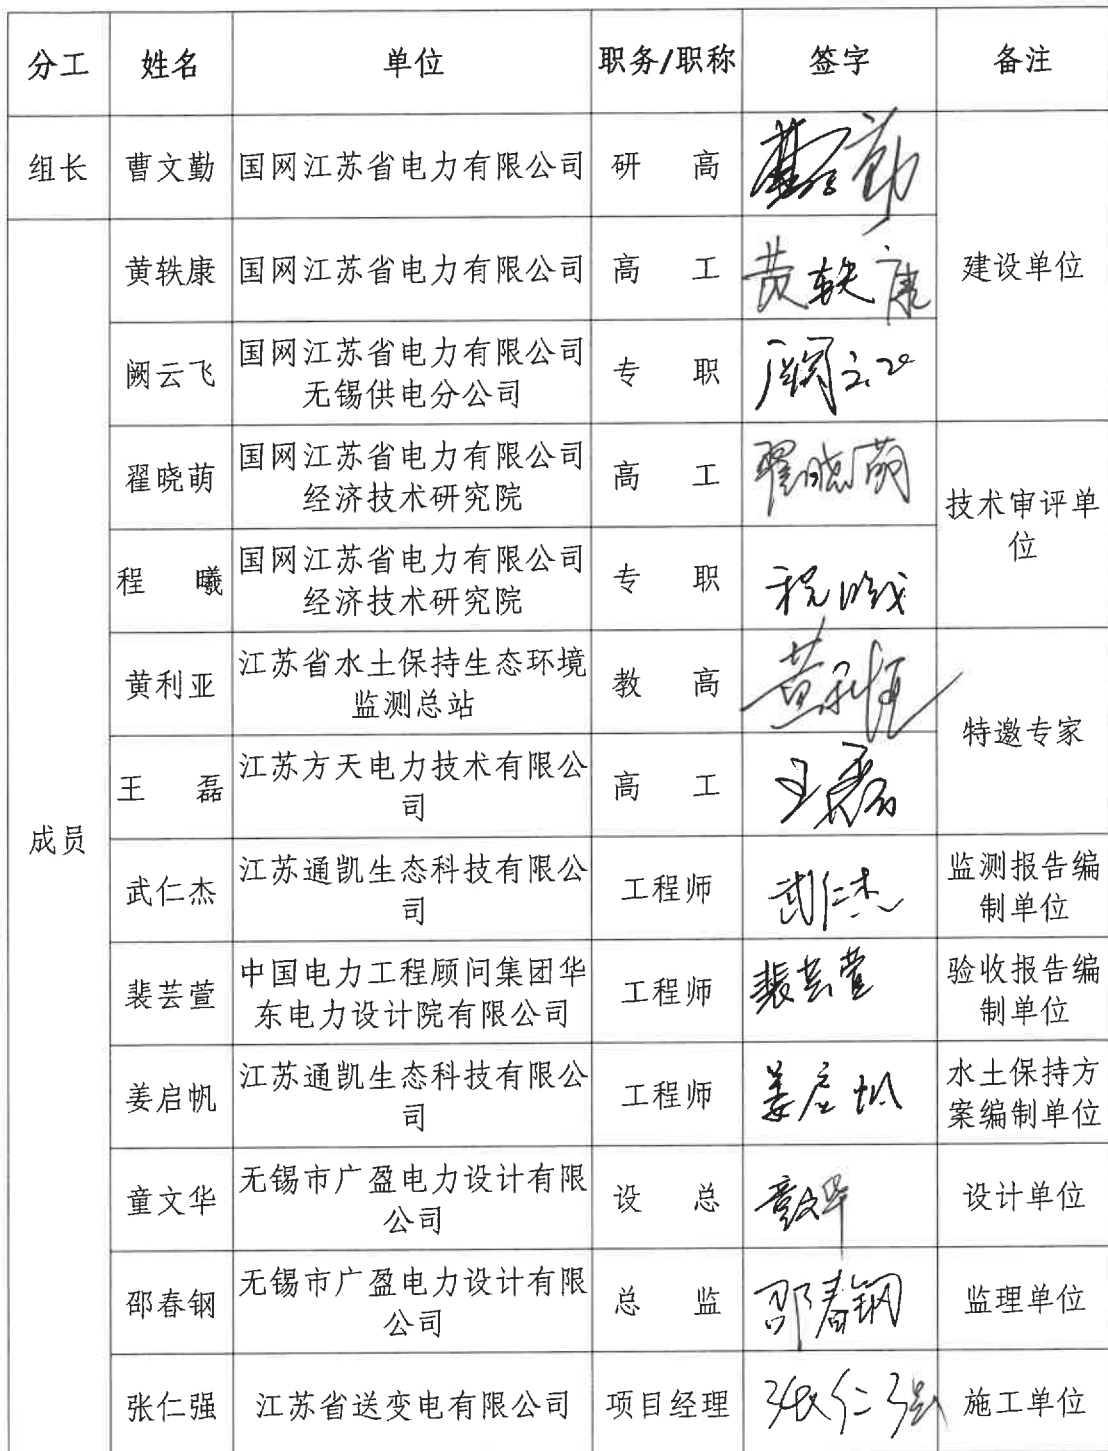 分工 姓名 单位 职务/职称 签字 备注
组长 曹文勤 国网江苏省电力有限公司 研 高 曹文勤
黄轶康 国网江苏省电力有限公司 高 工 黄轶康 建设单位
阙云飞 国网江苏省电力有限公司
无锡供电分公司 专 职 阙云飞
翟晓萌 国网江苏省电力有限公司
经济技术研究院 高 工 翟晓萌
技术审评单
位
程 曦 国网江苏省电力有限公司
经济技术研究院 专 职 程曦
黄利亚 江苏省水土保持生态环境
监测总站 教 高 黄利亚
特邀专家
王 磊 江苏方天电力技术有限公
司 高 工 王磊
成员
武仁杰 江苏通凯生态科技有限公
司 工程师 武仁杰 监测报告编
制单位
裴芸萱 中国电力工程顾问集团华
东电力设计院有限公司 工程师 裴芸萱 验收报告编
制单位
姜启帆 江苏通凯生态科技有限公
司 工程师 姜启帆 水土保持方
案编制单位
童文华 无锡市广盈电力设计有限
公司 设 总 童文华 设计单位
邵春钢 无锡市广盈电力设计有限
公司 总 监 邵春钢 监理单位
张仁强 江苏省送变电有限公司 项目经理 张仁强 施工单位